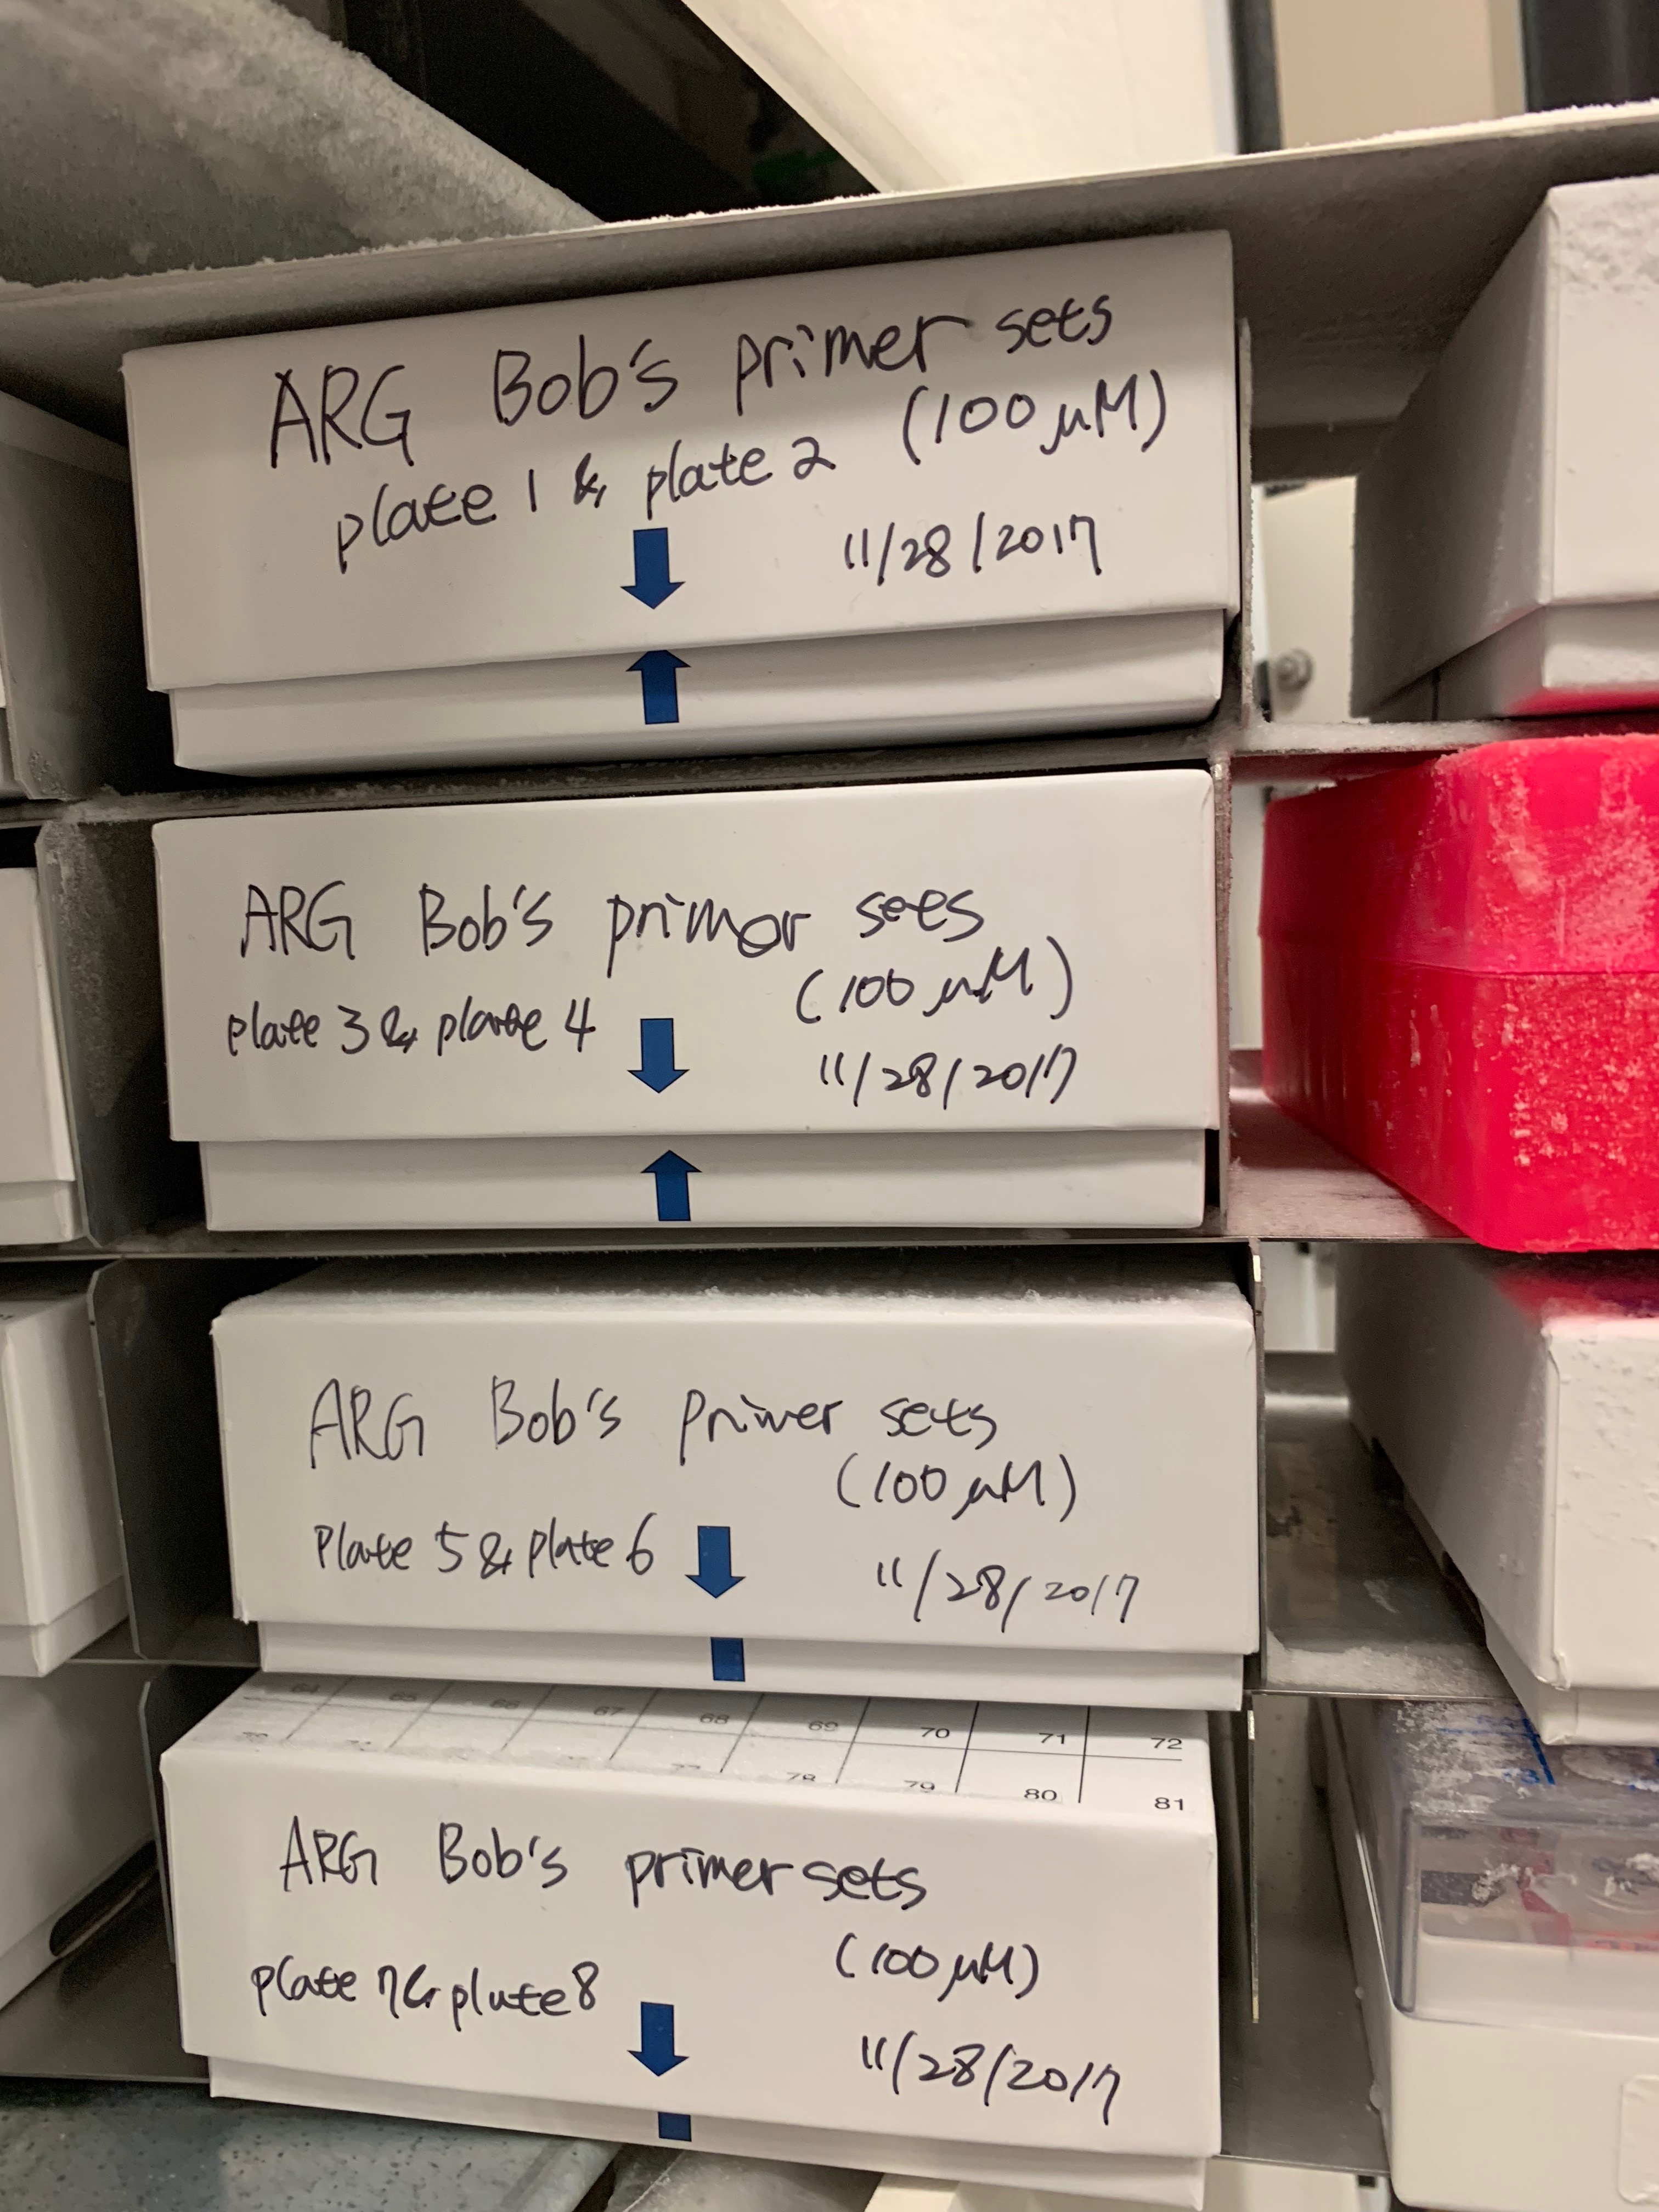 ARG Bob's primer sets
plate 1 & plate 2 (100 μM)
11/28/2017
ARG Bob's primer sets
(100 μM)
plate 3 & plate 4
11/28/2017
ARG Bob's primer sets
(100 μM)
Plate 5 & plate 6
11/28/2017
64 65 66 67 68 69 70 71 72
77 78 79 80 81
ARG Bob's primer sets
(100 μM)
plate 7 & plate 8
11/28/2017